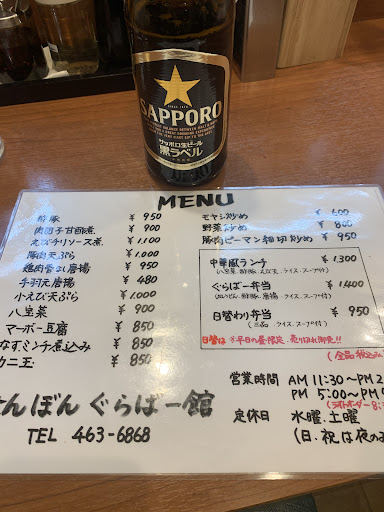 SAPPORO
サッポロ生ビール
黒ラベル
MENU
酢豚 ¥ 950
肉団子甘酢煮 ¥ 900
えびチリソース煮 ¥ 1,100
豚肉天ぷら ¥ 1,000
鶏肉骨なし唐揚 ¥ 950
手羽元唐揚 ¥ 480
小えび天ぷら ¥ 1,000
八宝菜 ¥ 900
マーボー豆腐 ¥ 850
なすミンチ煮込み ¥ 850
カニ玉 ¥ 850
モヤシ炒め ¥ 600
野菜炒め ¥ 800
豚肉ピーマン細切炒め ¥ 950
中華風ランチ ¥ 1,300
(八宝菜.酢豚.えび天.ライス.スープ付)
ぐらばー弁当 ¥ 1,400
日替わり弁当 ¥ 950
(三品.ライス.スープ付)
日替は 平日の昼限定、売り切れ御免!!
(全品 税込み
営業時間 AM 11:30〜PM 2
PM 5:00〜PM 9
(ラストオーダー 8:
定休日 水曜.土曜
(日.祝は夜のみ
ぽん ぐらばー館
TEL 463-6868